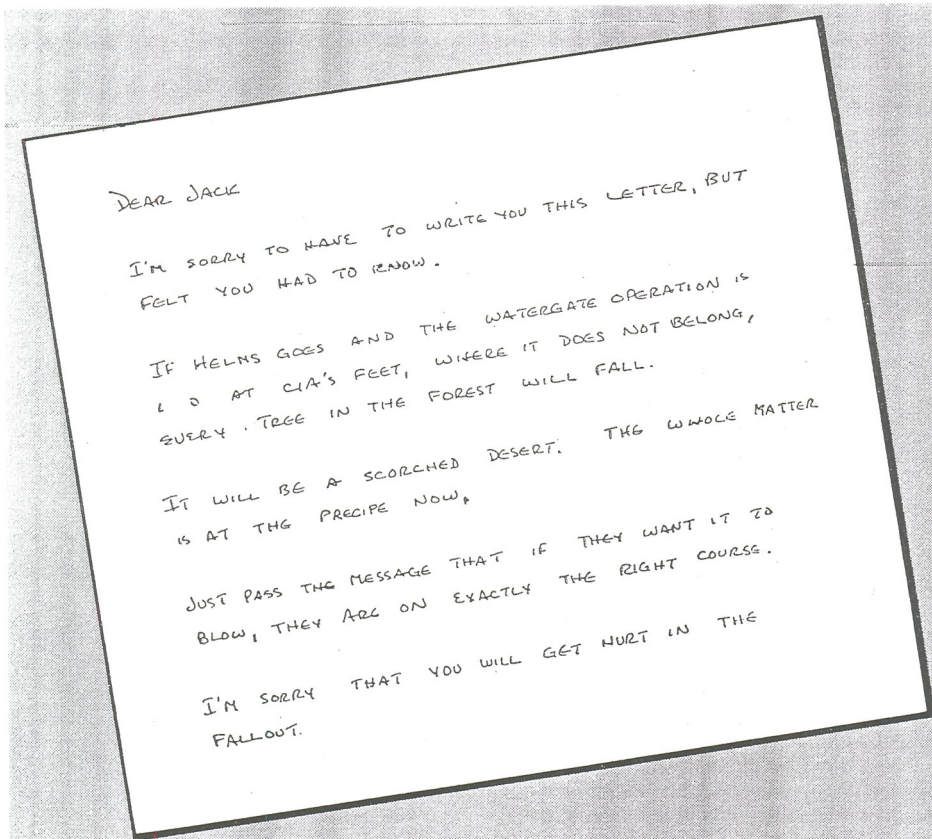 DEAR JACK
I'M SORRY TO HAVE TO WRITE YOU THIS LETTER, BUT
FELT YOU HAD TO KNOW.
IF HELMS GOES AND THE WATERGATE OPERATION IS
L D AT CIA'S FEET, WHERE IT DOES NOT BELONG,
EVERY . TREE IN THE FOREST WILL FALL.
IT WILL BE A SCORCHED DESERT. THE WHOLE MATTER
IS AT THE PRECIPE NOW.
JUST PASS THE MESSAGE THAT IF THEY WANT IT TO
BLOW, THEY ARE ON EXACTLY THE RIGHT COURSE.
I'M SORRY THAT YOU WILL GET HURT IN THE
FALLOUT.